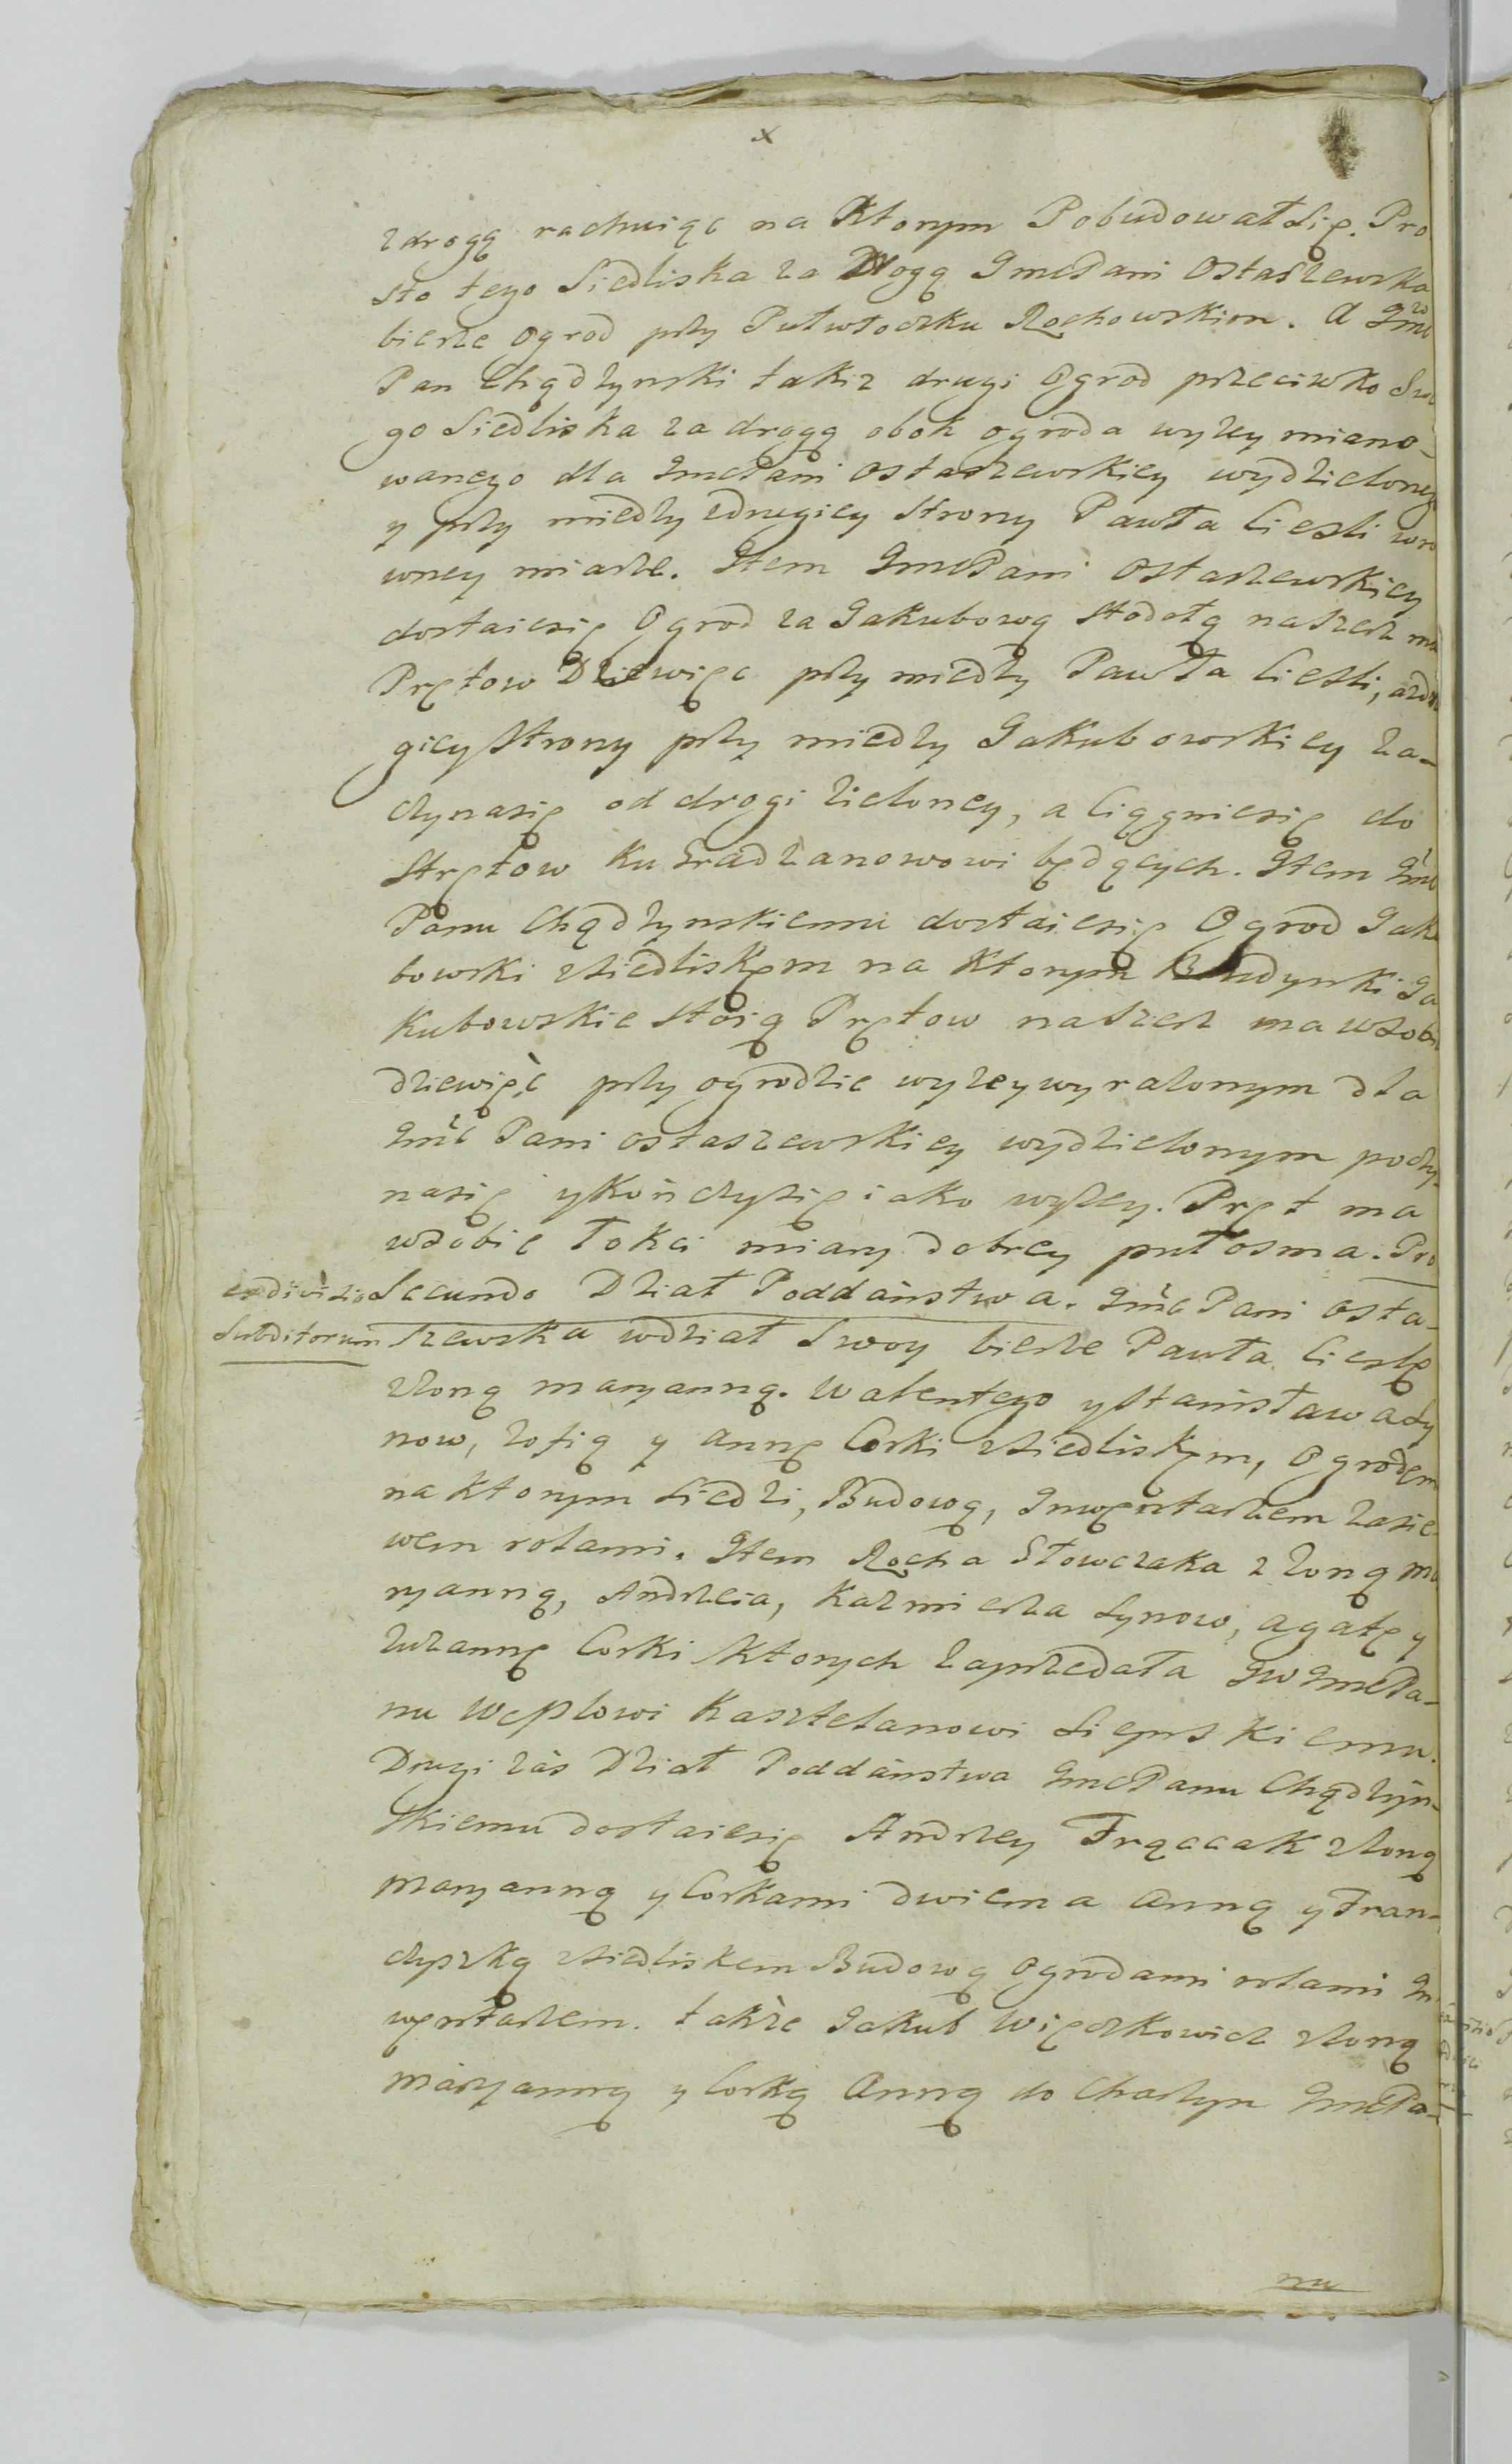 x
zdrogą rachuiąc na Ktorym Pobudował Się. Pro
sto tego Siedliska za Drogą JmcPani Ostaszewska
bierze Ogrod przy Putwłoczku Rochowskim. A Jmc
Pan Chądzynski takiz drugi Ogrod przeciwko Swe
go Siedliska za drogą obok ogroda wyzey miano-
wanego dla JmcPani Ostaszewskiey wydzielonego
y przy miedzy zdrugiey Strony Pawła Ciesli wro
wney miarze. Item JmcPani Ostaszewskiey
dostaiesię Ogrod za Jakubową Stodołą naszesz ma
Prętow Dziewięc przy miedzy Pawła Ciesli, azdru
giey Strony przy miedzy Jakubowskiey za-
czynasię od drogi zieloney, a Ciągniesię do
Strętow Ku Gradzanowowi będących. Item Jmc
Panu Chądzynskiemu dostaiesię Ogrod Jaku
bowski zSiedliskęm na Ktorym Budynki Ja
Kubowskie Stoią Prętow naszesz ma wSobie
dziewięć przy ogrodzie wyzeywyrazonym dla
Jmc Pani ostaszewskiey wydzielonym poczy-
nasię ykończysię iako wyzey. Pręt ma
wsobie łokci miary dobrey pułosma. Pro
exdivisio Secundo Dział Poddaństwa. Jmc Pani Osta-
Subditorum szewska wdział Swoy bierze Pawła Cieslę
zżoną maryanną. Walentego yStanisława Sy
now, Zofią y Annę Corki zSiedliskęm, Ogrodęm
na Ktorym Siedzi, Budową, Inwęntarzem Zasie-
wem rolami. Item Rocha Słowczaka z Zoną Ma
ryanną, Andrzeia, Kazmierza Synow, Agatę y
Zuzannę Corki Ktorych Zaprzedała JwJmcPa-
nu Weplowi Kasztelanowi Sieprskiemu.
Drugi zás Dział Poddaństwa JmcPanu Chądzyn-
skiemu dostaiesię Andrzey Frącczak zżoną
Maryanną y Corkami dwiema Anną y Fran-
ciszką zSiedliskem Budową Ogrodami rolami In
węntarzem. także Jakub Więczkowicz zżoną
Maryanną y Corką Anną do Charzyn JmcPa-
nu